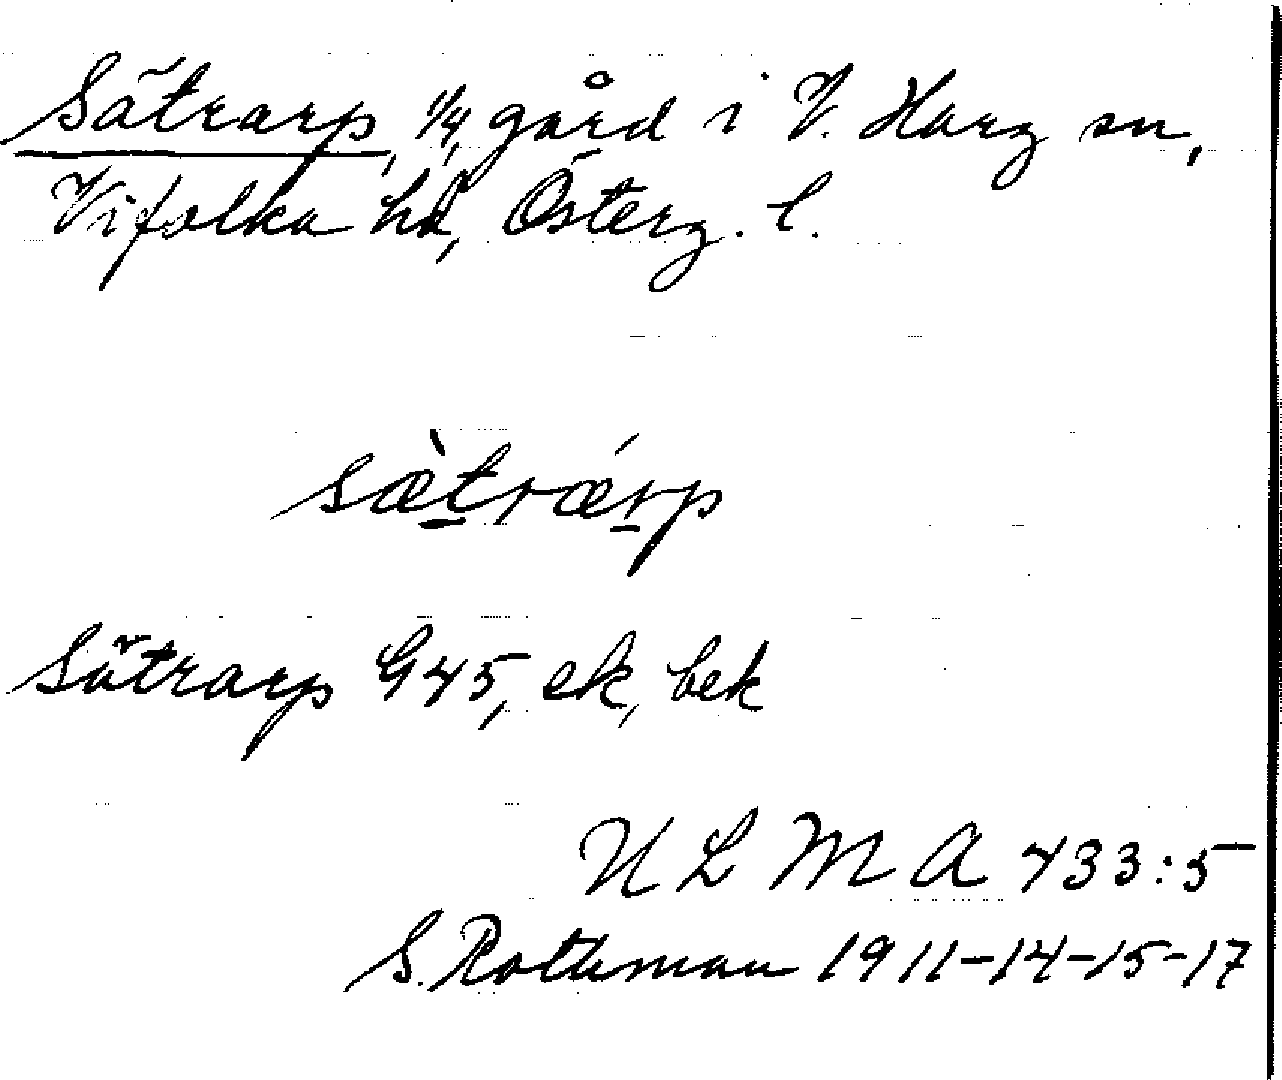 Sätrarp, 1/4 gård i V. Harg sn,
Vifolka hd, Österg. l.
sæ̀trǽrp
Sätrarp G45, ek, bek
ULMA 433:5
S. Rothman 1911-14-15-17